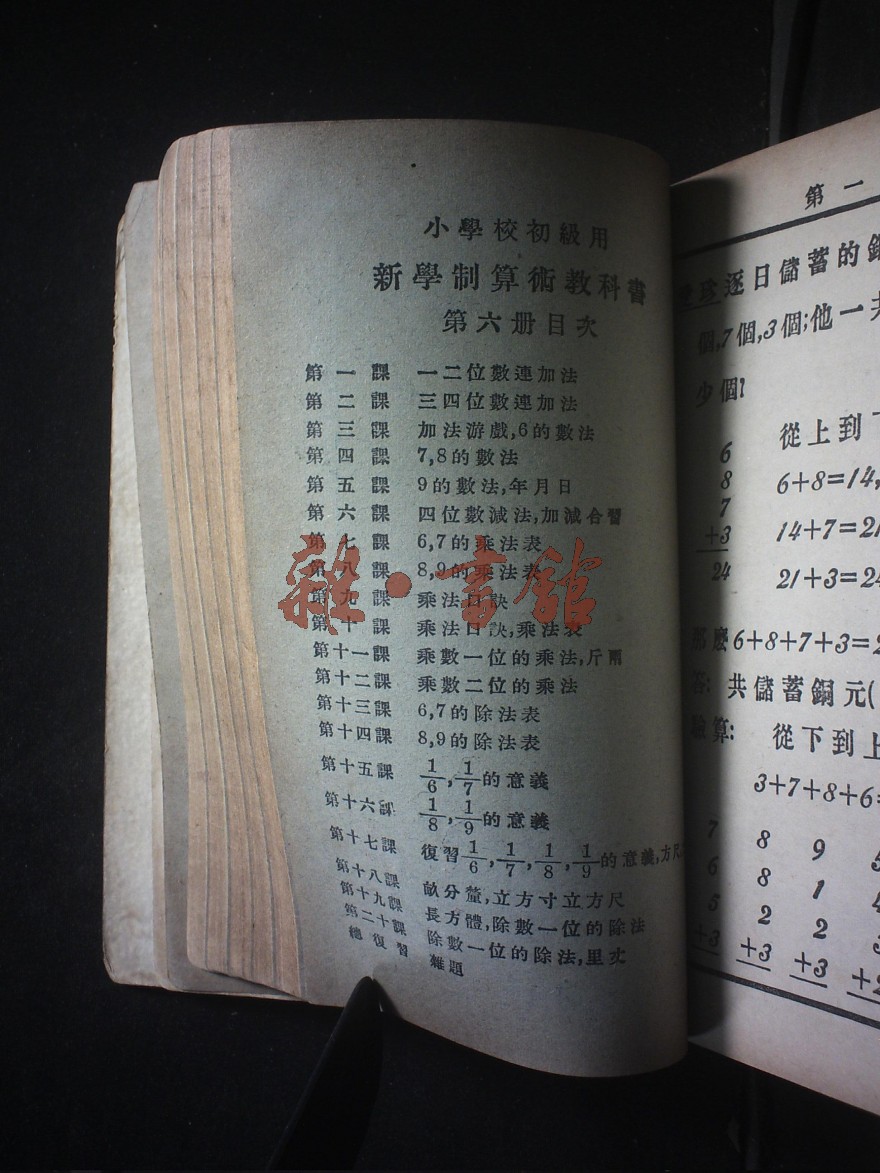 小學校初級用
新學制算術教科書
第六册目次
第一課 一二位數連加法
第二課 三四位數連加法
第三課 加法游戲,6的數法
第四課 7,8的數法
第五課 9的數法,年月日
第六課 四位數減法,加減合習
第七課 6,7的乘法表
第八課 8,9的乘法表
第九課 乘法口訣
第十課 乘法口訣,乘法表
第十一課 乘數一位的乘法,斤兩
第十二課 乘數二位的乘法
第十三課 6,7的除法表
第十四課 8,9的除法表
第十五課 1/6,1/7的意義
第十六課 1/8,1/9的意義
第十七課 復習1/6,1/7,1/8,1/9的意義,方尺
第十八課 畝分釐,立方寸立方尺
第十九課 長方體,除數一位的除法
第二十課 除數一位的除法,里丈
總復習 雜題
雜·書館
第一
珍逐日儲蓄的
個,7個,3個;他一共
少個?
從上到下
6
8 6+8=14,
7
+3 14+7=21
24 21+3=24
那麼6+8+7+3=2
答:共儲蓄銅元(
驗算: 從下到上
3+7+8+6=
7 8 9 5
6 8 1 4
5 2 2 3
+3 +3 +3 +2